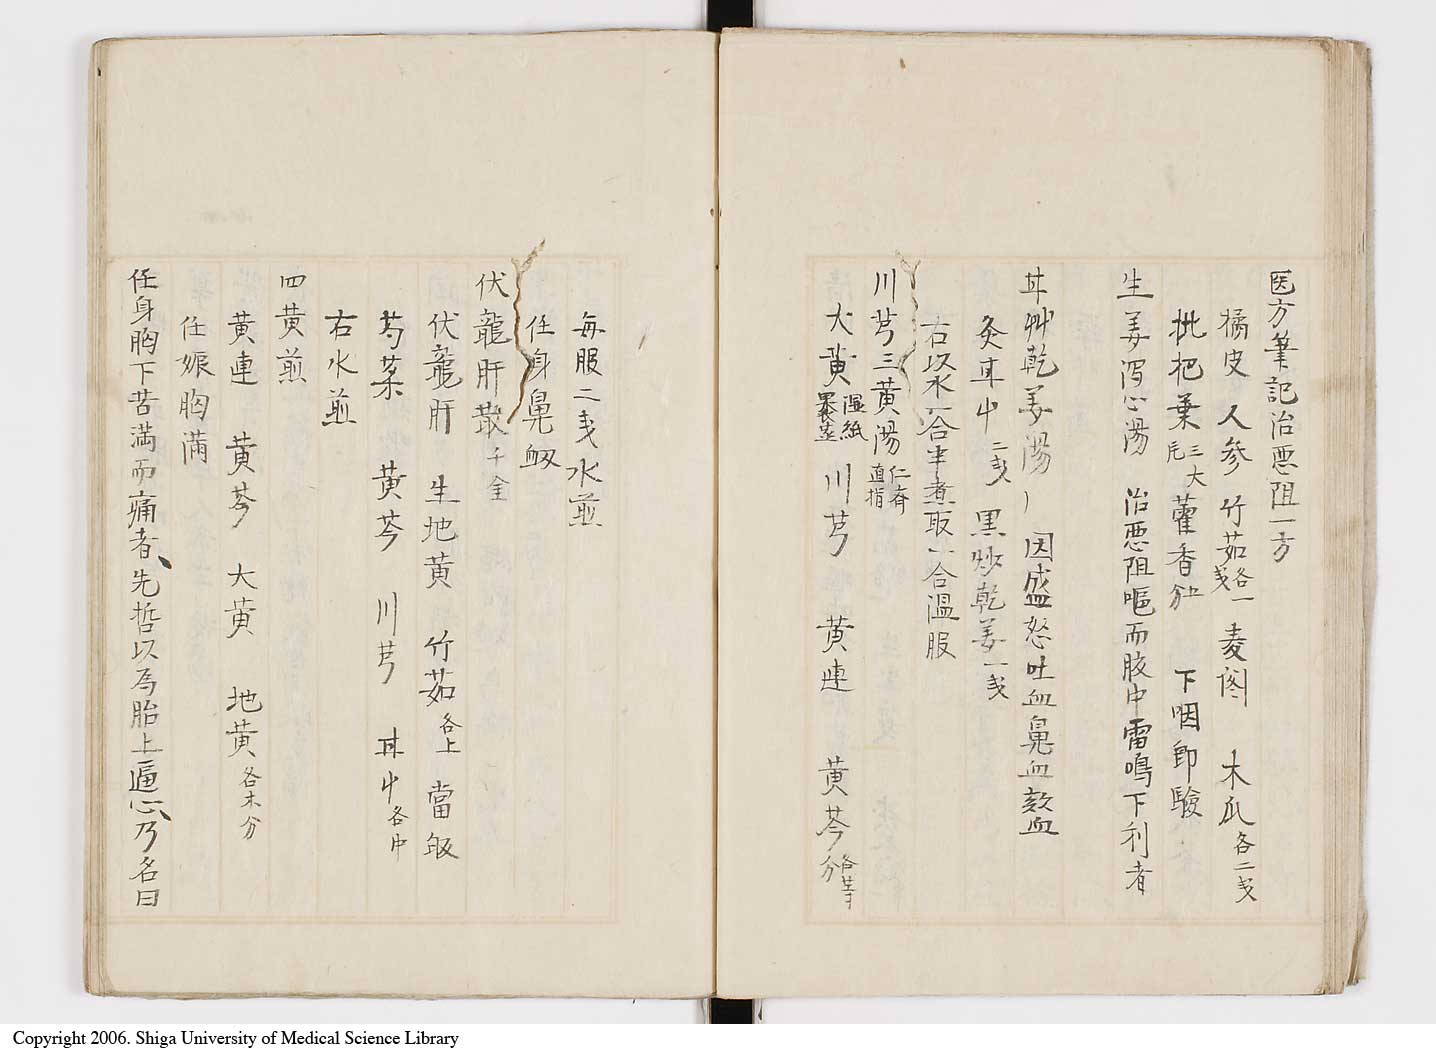 医方筆記治悪阻一方
橘皮 人参 竹茹各一戔 麦閣 木瓜各二戔
枇把葉三大 藿香 下咽即驗
生姜瀉心湯 治悪阻嘔而腹中雷鳴下利者
甘艸乾姜湯 因盛怒吐血鼻血欬血
炙甘中二戔 黒炒乾姜一戔
右以水一合半煮取一合温服
川芎三黄湯仁斎直指
大黄湿紙裹 川芎 黄連 黄芩各等分
毎服二戔水煎
任身鼻衂
伏龍肝散千金
伏龍肝 生地黄 竹茹各上 當皈
芍薬 黄芩 川芎 甘中各中
右水煎
四黄煎
黄連 黄芩 大黄 地黄各木分
任娠胸滿
任身胸下苦満而痛者、先哲以為胎上逼心、乃名曰
Copyright 2006. Shiga University of Medical Science Library